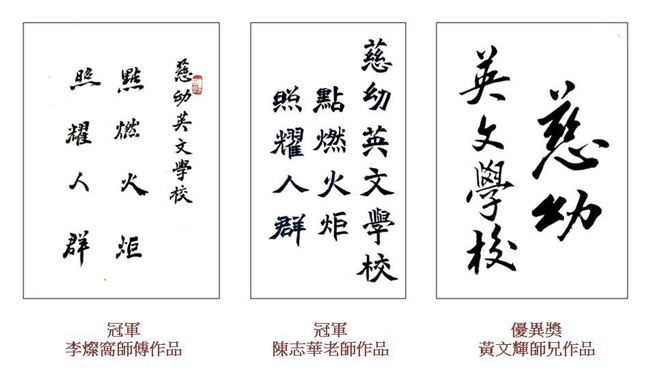 慈幼英文學校
點燃火炬
照耀人群
慈幼英文學校
點燃火炬
照耀人群
慈幼
英文學校
冠軍
李燦窩師傅作品
冠軍
陳志華老師作品
優異獎
黃文輝師兄作品